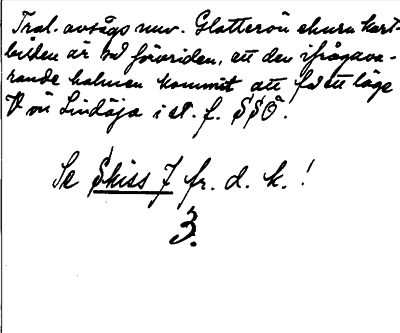 Trol. avsågs nuv. Glotterön ehuru kart-
bilden är så förvriden, att den ifrågava-
rande halvön kommit att få ett läge
V om Lindöja i st. f. SSO.
Se Skiss 7 fr. d. k.!
3.